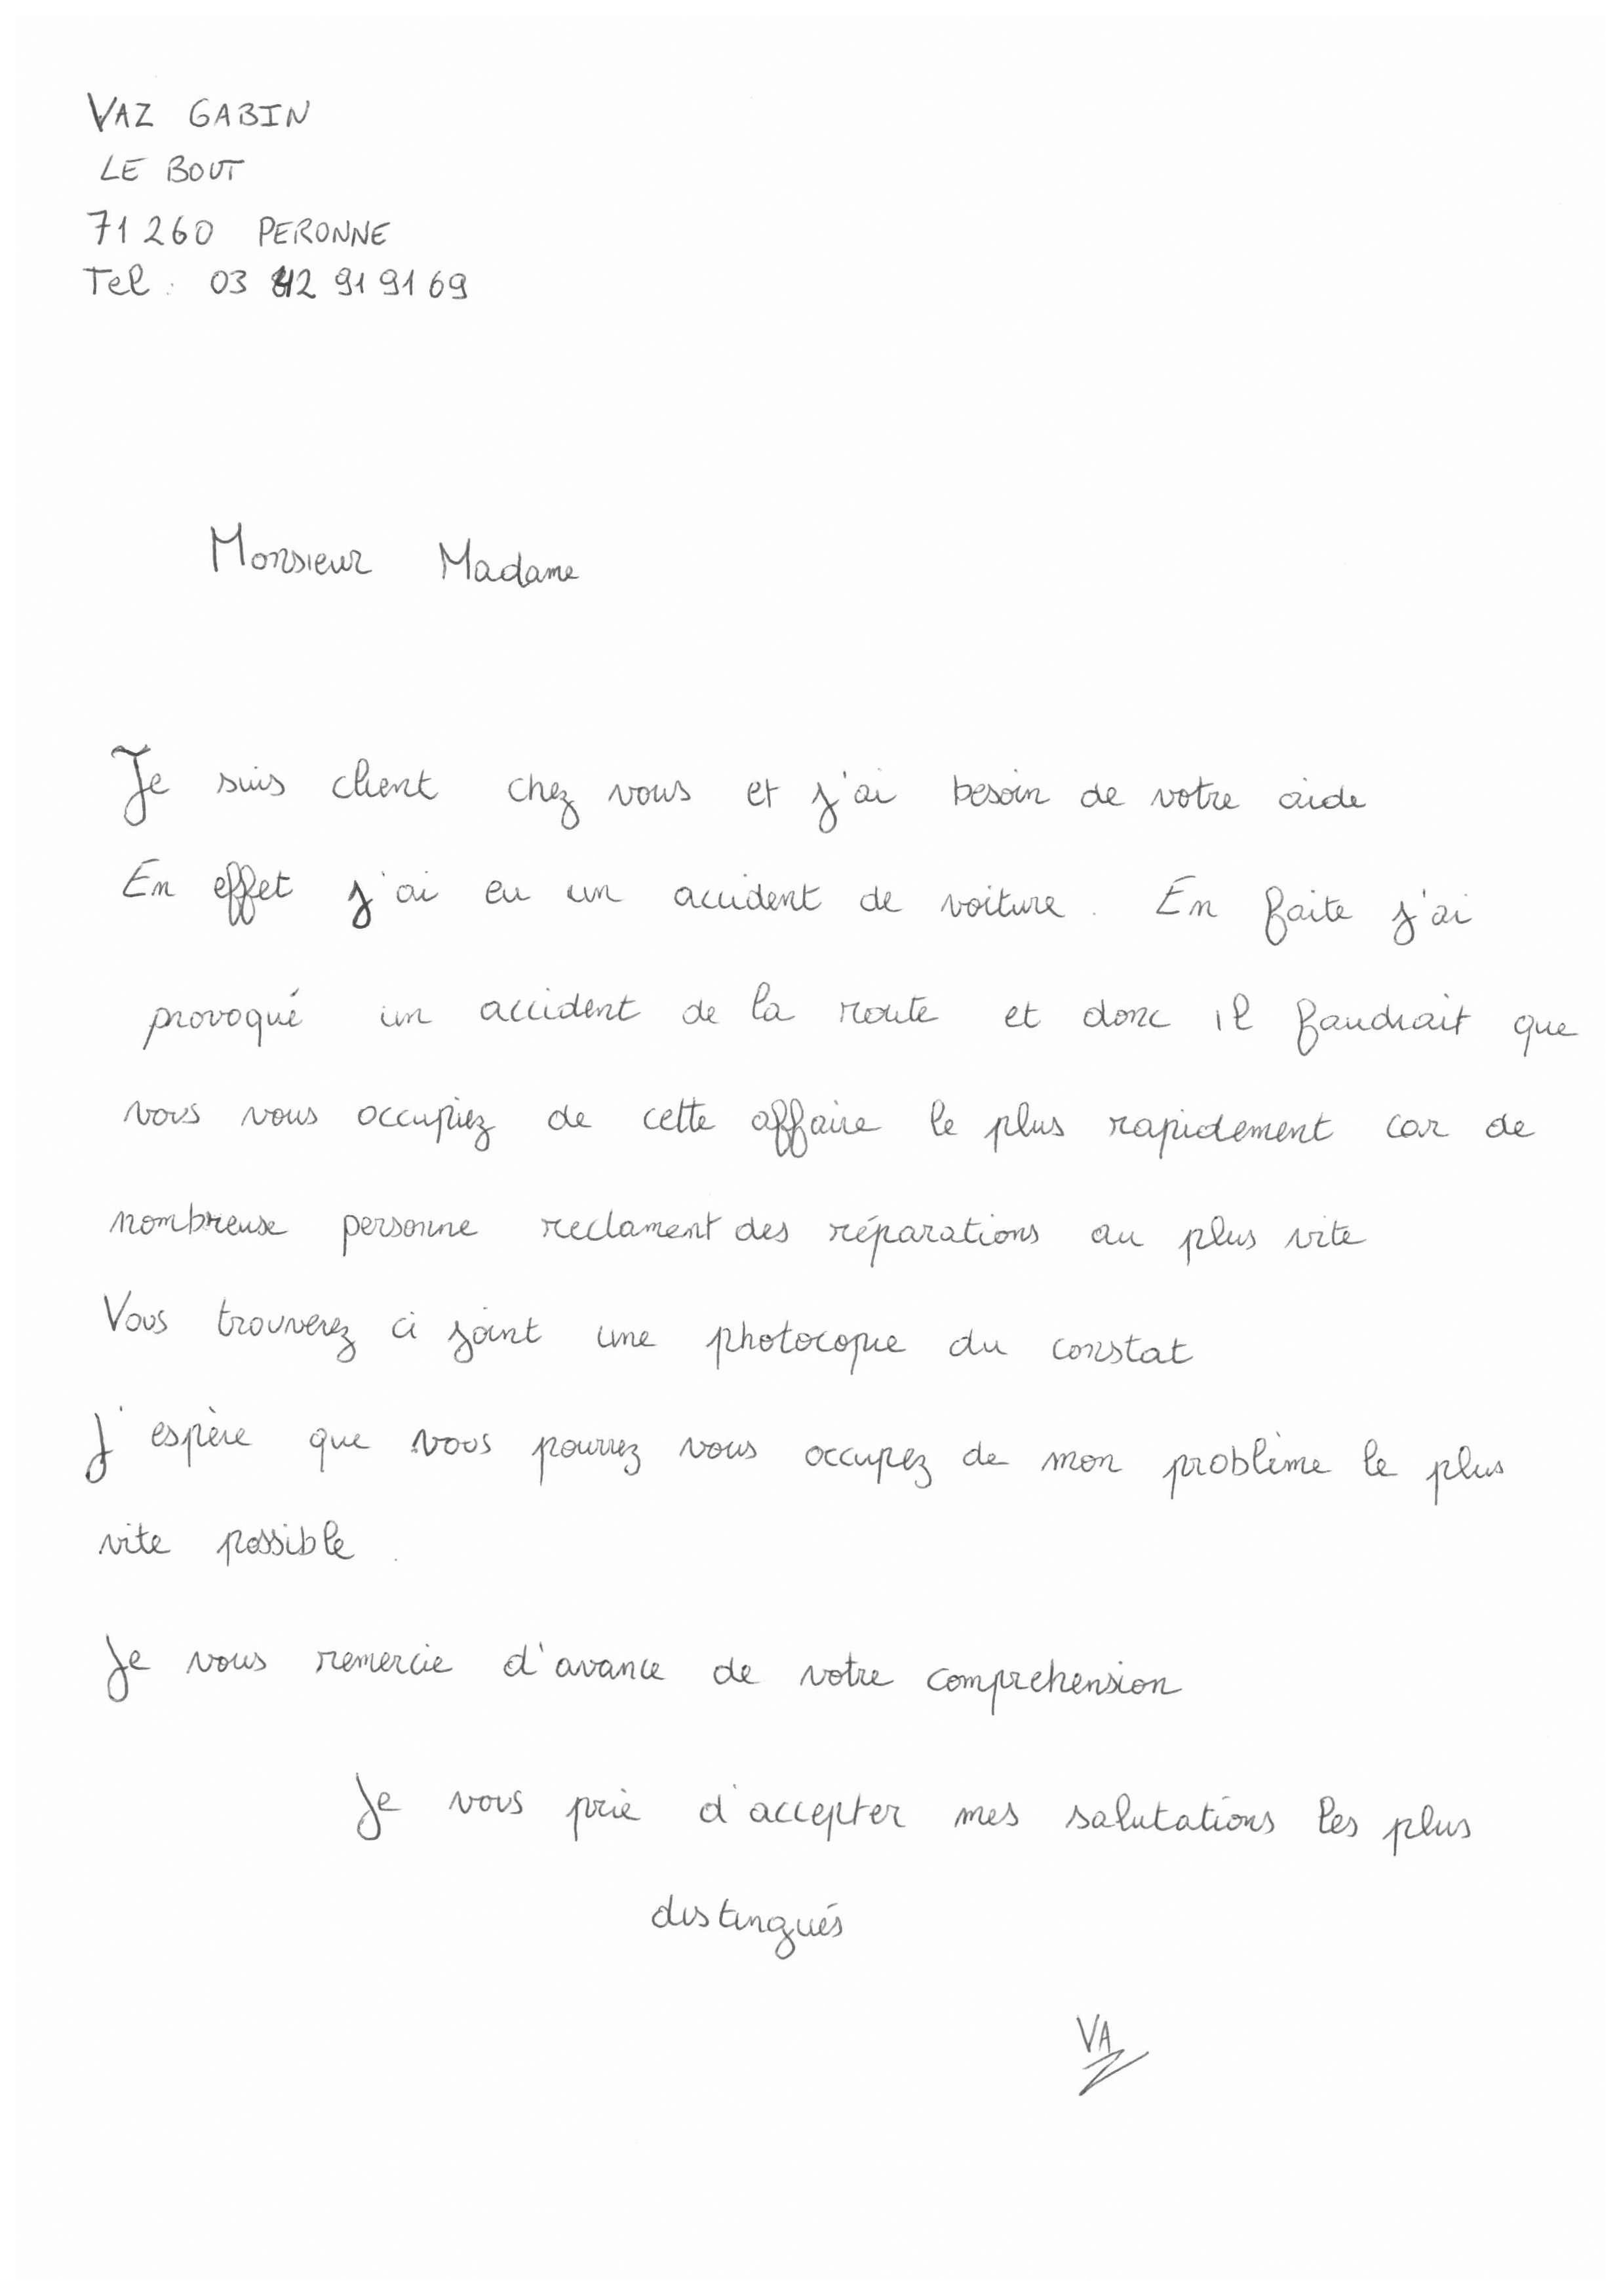 VAZ GABIN
LE BOUT
71260 PERONNE
Tel : 03 42 91 91 69
Monsieur Madame
Je suis client chez vous et j'ai besoin de votre aide
En effet j'ai eu un accident de voiture. En faite j'ai
provoqué un accident de la route et donc il faudrait que
vous vous occupiez de cette affaire le plus rapidement car de
nombreuse personne reclament des réparations au plus vite
Vous trouverez ci joint une photocopie du constat
J'espère que vous pourrez vous occupez de mon problème le plus
vite possible.
Je vous remercie d'avance de votre comprehension
Je vous prie d'accepter mes salutations les plus
distingués
VAZ